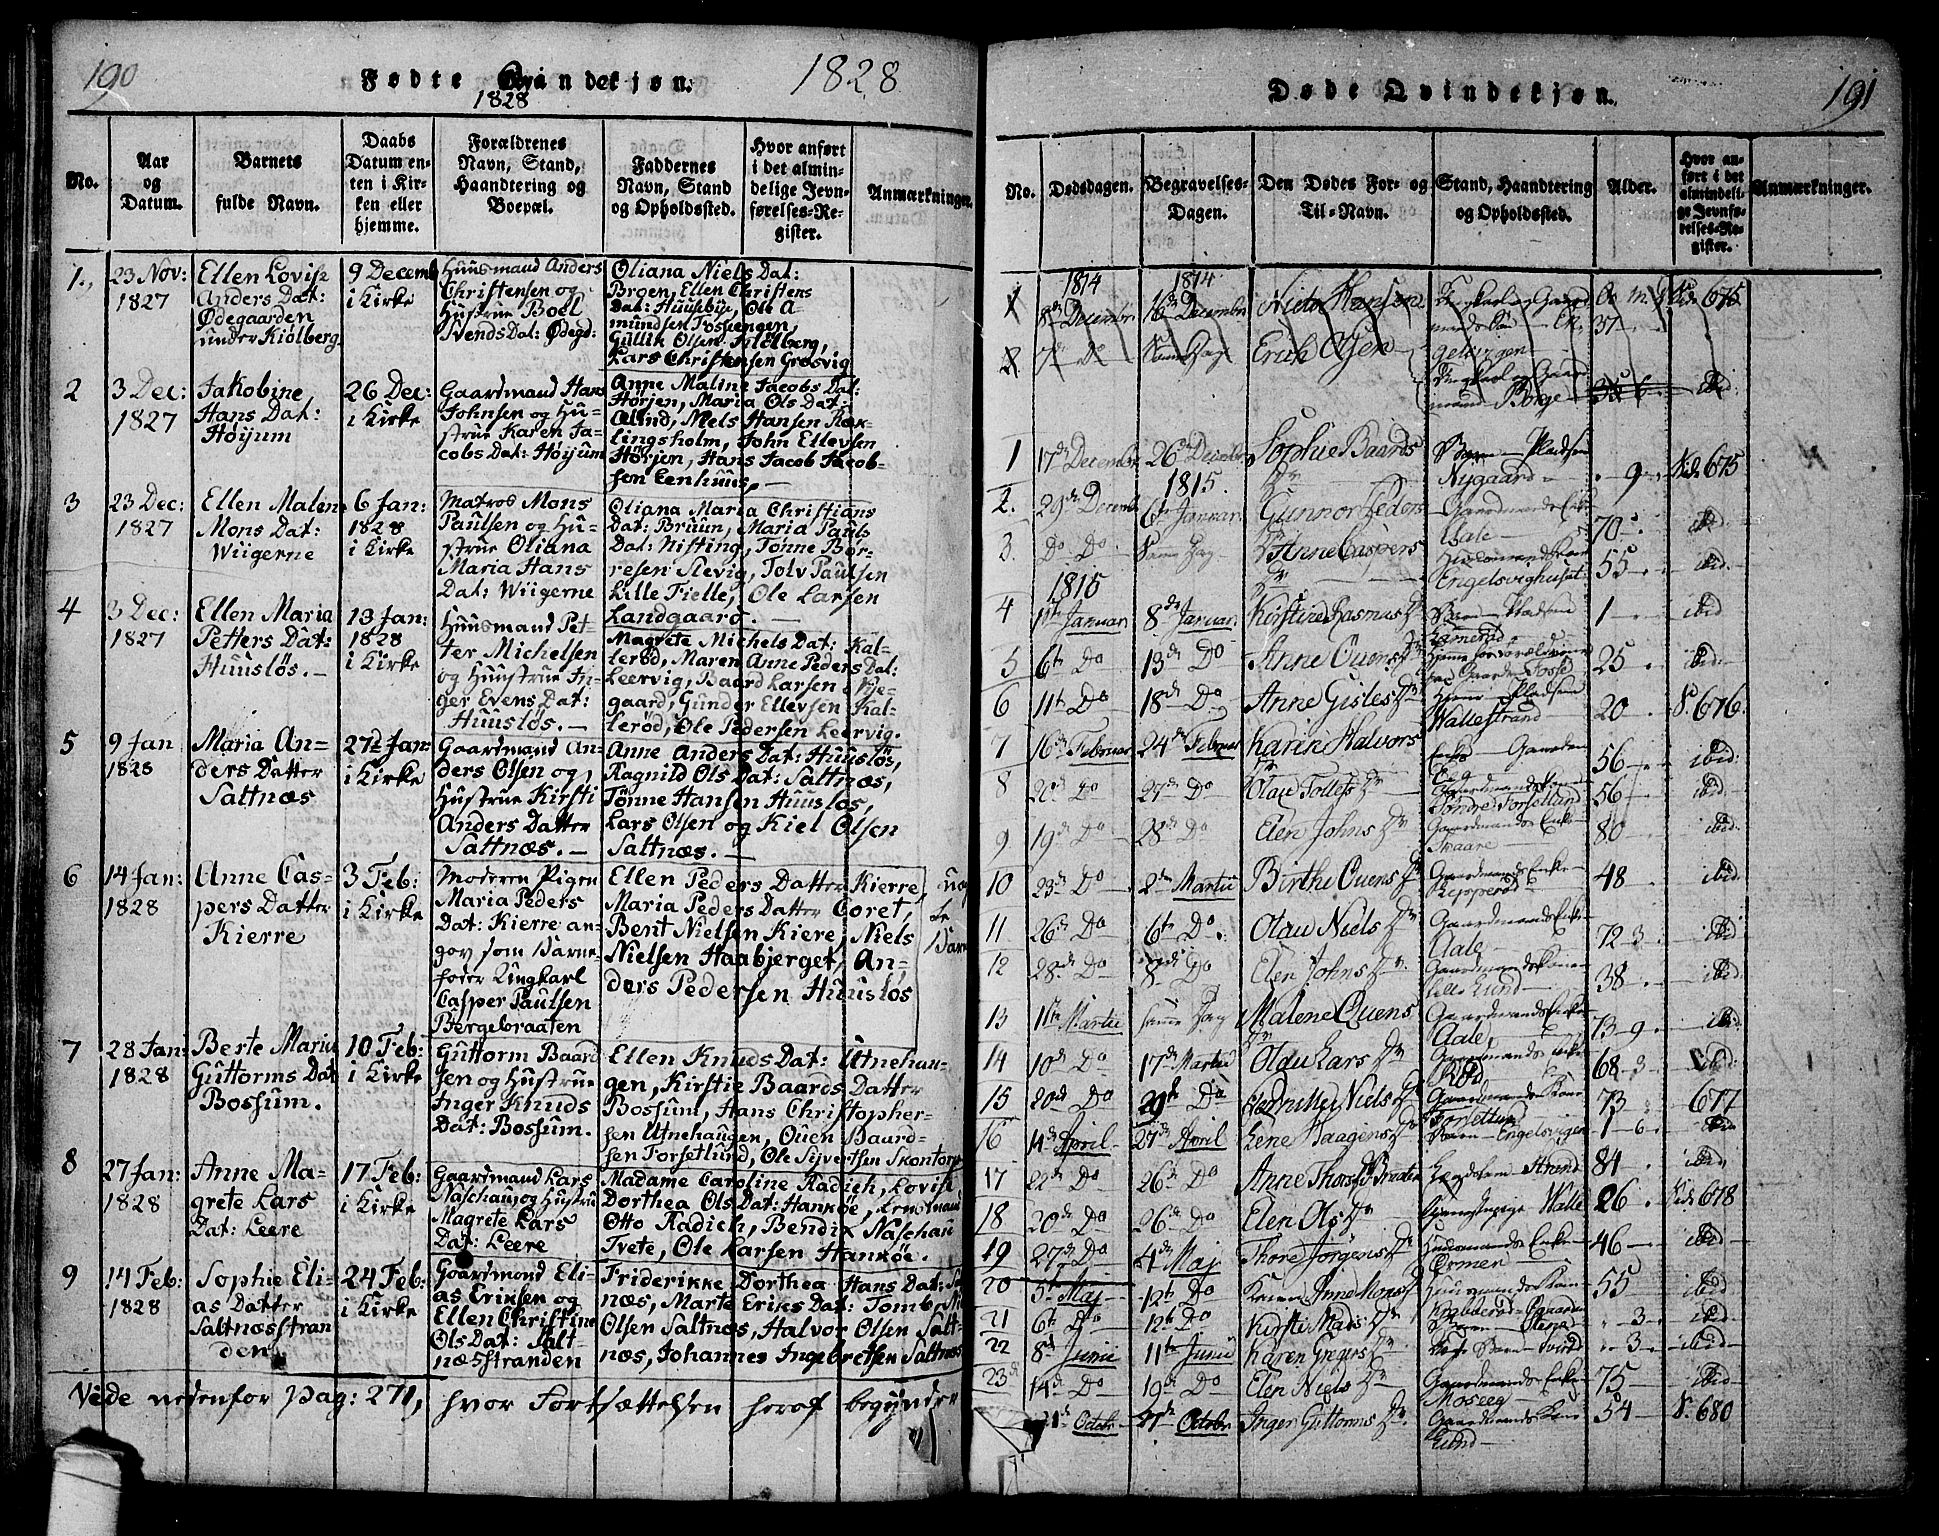 190
Fødte Qvindekjøn.
1828
1828
No.
Aar
og
Datum.
Barnets
fulde Navn.
Daabs
Datum en-
ten i Kir-
ken eller
hjemme.
Forældrenes
Navn, Stand,
Haandtering og
Boepæl.
Faddernes
Navn, Stand
og Opholdssted.
Hvor anført
i det almin-
delige Jevn-
førelses-Re-
gister.
Anmærkninger.
1.,
23 Nov:
1827
Ellen Lovise
Anders Dat:
Ødegaarden
under Kiølberg
9 Decemb
i Kirke
Huusmand Anders
Christensen og
Hustrue Boel
Svends Dat: Ødegd:
Oliana Niels Dat:
Broen, Ellen Christens
Dat: Huusbye, Ole A-
mundsen
Gullik Olsen
Lars Christensen Grøsvig
2
3 Dec:
1827
Jakobine
Hans Dat:
Høijum
26 Dec:
i Kirke
Gaardmand Hans
Johnsen og Hu-
strue Karen Ja-
cobs Dat: Høijum
Anne Maline Jacobs Dat:
Hørjen, Maria Ols Dat:
Ølind, Niels Hansen Ræk-
lingsholm, John Ellevsen
Hørjen, Hans Jacob Jacob-
sen Eenhuus, —
3
23 Dec:
1827
Ellen Malene
Mons Dat:
Wiigerne
6 Jan:
1828
i Kirke
Matros Mons
Paulsen og Hu-
strue Oliana
Maria Hans
Dat: Wiigerne
Oliana Maria Christians
Dat: Bruun, Maria Pauls
Dat: Nisting, Tønne Bor-
resen Slevig, Tolv Paulsen
Lille Fielle, Ole Larsen
Landgaard. —
4
3 Dec:
1827
Ellen Maria
Petters Dat:
Huusløs. —
13 Jan:
1828
i Kirke
Huusmand Pet-
ter Michelsen
og Hustrue In-
ger Evens Dat:
Huusløs. —
Magrete Michels Dat: Kal-
lerød, Maren Anne Peders Dat:
Leervig, Baard Larsen
gaard, Gunder Ellevsen Kal-
lerød, Ole Pedersen Leervig.
5
9 Jan
1828
Maria An-
ders Datter
Saltnæs
27de Jan:
i Kirke
Gaardmand An-
ders Olsen og
Hustrue Kirsti
Anders Datter
Saltnæs. —
Anne Anders Dat: Huusløs,
Ragnild Ols Dat: Saltnæs,
Tønne Hansen Huusløs,
Lars Olsen og Kiel Olsen
Saltnæs. —
6
14 Jan:
1828
Anne Cas-
pers Datter
Kierre
3 Feb:
i Kirke
Moderen Pigen
Maria Peders
Dat: Kierre an-
gav som Barne-
fader Ungkarl
Casper Paulsen
Bergebraaten
Ellen Peders Datter Kierre,
Maria Peders Datter Coret,
Bent Nielsen Kiere, Niels
Nielsen Haabjerget, An-
ders Pedersen Huusløs
uæg
te
Barn
7
28 Jan:
1828
Berte Maria
Guttorms Dat
Bossum.
10 Feb:
i Kirke
Guttorm Baard
sen og Hustrue
Inger Knuds
Dat: Bossum.
Ellen Knuds Dat: Utnehau-
gen, Kirstie Baards Datter
Bossum, Hans Christopher-
sen Utnehaugen, Ouen Baard-
sen Torsetlund, Ole Sijvertsen Skontorp
8
27 Jan:
1828
Anne Ma-
grete Lars
Dat: Leere
17 Feb:
i Kirke
Gaardmand Lars
Naschau, og Hustrue
Magrete Lars
Dat: Leere
Madame Caroline Radich, Lovise
Dorthea Ols Dat: Hankøe,
Otto Radich, Bendix Naschau
Tvete, Ole Larsen Hankøe.
9
14 Feb:
1828
Sophie Eli-
as Datter
Saltnæsstran
den
24 Feb:
i Kirke
Gaardmand Eli-
as Eriksen og
Ellen Christine
Ols Dat: Salt-
næsstranden
Friderikke Dorthea Hans Dat:
næs, Marte Eriks Dat: Tomb,
Olsen Saltnæs, Halvor Olsen Salt-
næs, Johannes Ingebretsen Saltnæs
Vide nedenfor Pag: 271, hvor Fortsættelsen heraf begynder
191
Døde Qvindekjøn.
No.
Dødsdagen.
Begravelses-
Dagen.
Den Dødes For- og
Til-Navn.
Stand, Haandtering
og Opholdssted.
Alder.
Hvor an-
ført i det
almindeli-
ge Jevnfø-
relses-Re-
gister.
Anmærkninger.
1814
1814
8de Decembr.
16de Decembr
Niels Hansen
37
675
7de Do
Samme Dag
Erich Olsen
Borge
ibid.
1
17de Decembr
26de Decembr
Sophie Baards
Dr
Barn — Pladsen
Nygaard
9
Vide 675
1815.
2.
29de Decemb.
6te Januar.
Gunnor Peders
Dr
Gaardmands Enke
Aale
70
ibid.
3.
Do Do
Samme Dag
Anne Caspers
Dr
55
ibid.
1815
4
1te Januar.
8de Januar.
Kirstine Rasmus Dr
Barn — Pladsen
1
ibid
5
6te Do
13de Do
Anne Ouens Dr
25
ibid
6
11te Do
18de Do
Anne Gisles Dr
Pladsen
Wallestrand
20
S. 676.
7
16de Februar
24de Februar
Karine Halvors
Dr
Enke — Gaarden
56
ibid:
8
20de Do
27de Do
Olau Tolless Dr
Søndre Torsetlund
56
ibid
9
19de Do
28de Do
Elen Johns Dr
Gaardmands Enke
80
ibid
10
23de Do
2de Martii
Birthe Ouens Dr
Gaardmands Enke
48
ibid
11
26de Do
6te Do.
Olau Niels Dr
Gaardmands Enke
Aale
72 3
ibid
12
28de Do
8de Do
Elen Johns Dr.
Gaardmandskone
Lille Lund
38
ibid.
13
11te Martii
samme Dag
Malene Ouens
Dr
Gaardmands Enke
Aale,
73 9
ibid
14
10de Do
17de Martii
Olau Lars Dr
Gaardmands Enke
Rød
68 3
ibid:
15
20de Do
29de Do
Niels Dr
Gaardmands Kone
Torsetlund
73
677
16
14de April
27de April
Lene Haagens Dr
Barn — Engelsvigen
1 6
ibid
17
22de Do
26de Do
Anne Thors Dr Braten
Strand
84
ibid
18
20de Do
26de Do
Elen Ols Dr
Walle
26
Vide 678
19
27de Do
4de Maj
Thore Jørgens Dr
Huusmands Enke
Ørmen
46
ibid
20
5te Maj
12te Do
Anne Mons Dr
Huusmands Kone
55
ibid
21
6te Do
12te Do
Kirsti Mads Dr
3
ibid
22
8de Junii
11te Junii
Karen Gregers Dr
Barn
3
ibid
23de
14de Do
19de Do
Elen Niels Dr
Gaardmands Enke
Moseeg
75
ibid
21de Octobr
27de Octobr
Inger Guttorms Dr
Gaardmands Kone
Lund
54
S. 680